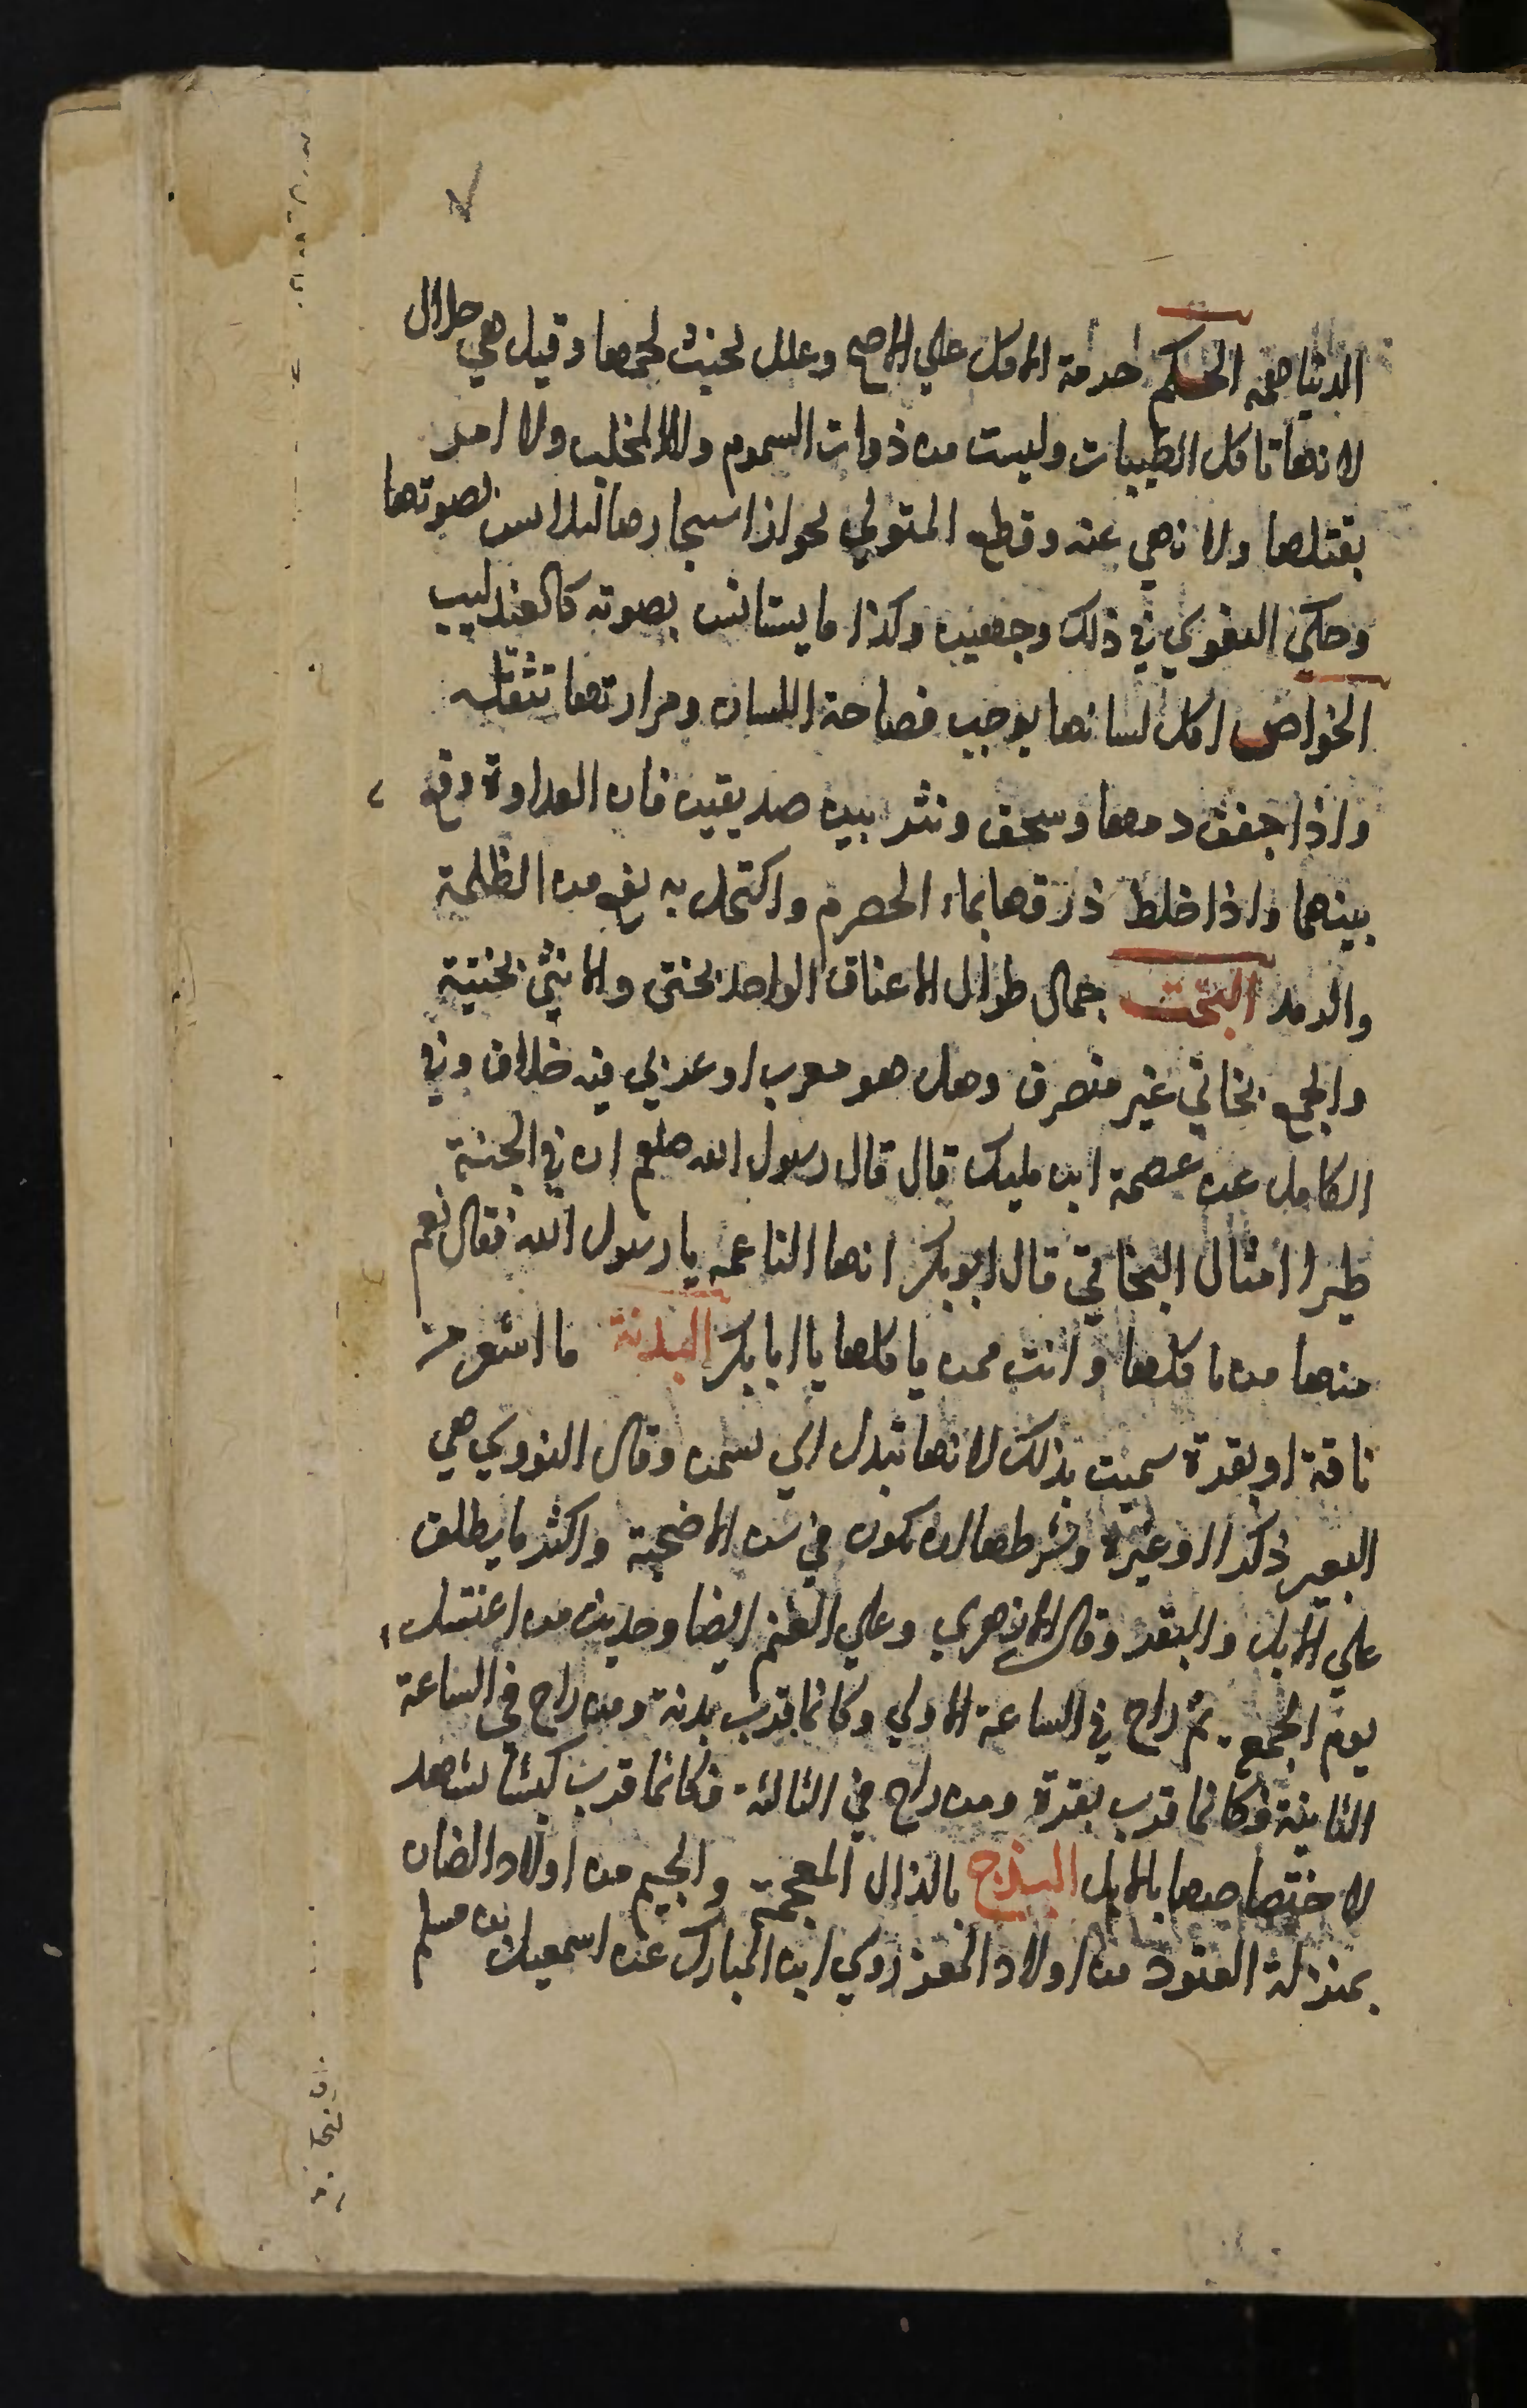 الدنيا همه الحكم حرمة الاكل علي الاصح وعلل لخبث لحمها وقيل هي حلال
لانها تاكل الطيبات وليست من ذوات السموم ولا المخلب ولا امر
بقتلها ولا نهي عنه وقطع المتولي لجواز استيجارها للانس بصوتها
وحكي البغوي في ذلك وجهين وكذا ما يستانس بصوته كالعندليب
الخواص اكل لسانها يوجب فصاحة اللسان ومرارتها تثقله
واذا جفف دمها وسحق ونثر بين صديقين فان العداوة تقع
بينهما واذا خلط ذرقها بماء الحصرم واكتحل به نفع من الظلمة
والرمد البخت جمال طوال الاعناق الواحد بختي والانثي بختية
والجمع بخاتي غير منصرف وهل هو معرب او عربي فيه خلاف وفي
الكامل عن عصمة ابن مليك قال قال رسول الله صلعم ان في الجنة
طيرا امثال البخاتي قال ابوبكر انها الناعمه يا رسول الله فقال نعم
منها من ياكلها وانت ممن ياكلها يا ابابكر البدنة ما اشعر من
ناقة او بقرة سميت بذلك لانها تبدن اي تسمن وقال النووي هي
البعير ذكرا او غيره وشرطها ان تكون في سن الاضحية واكثر ما يطلق
علي الابل والبقر وقال الازهري وعلي الغنم ايضا وحديث من اغتسل
يوم الجمعة ثم راح في الساعة الاولي وكانما قرب بدنة ومن راح في الساعة
الثانية فكانما قرب بقرة ومن راح في الثالثة فكانما قرب كبشا شاهد
لاختصاصها بالابل البذج بالذال المعجمة والجيم من اولاد الضان
بمنزلة العتود من اولاد المعز روي ابن المبارك عن اسمعيل بن مسلم